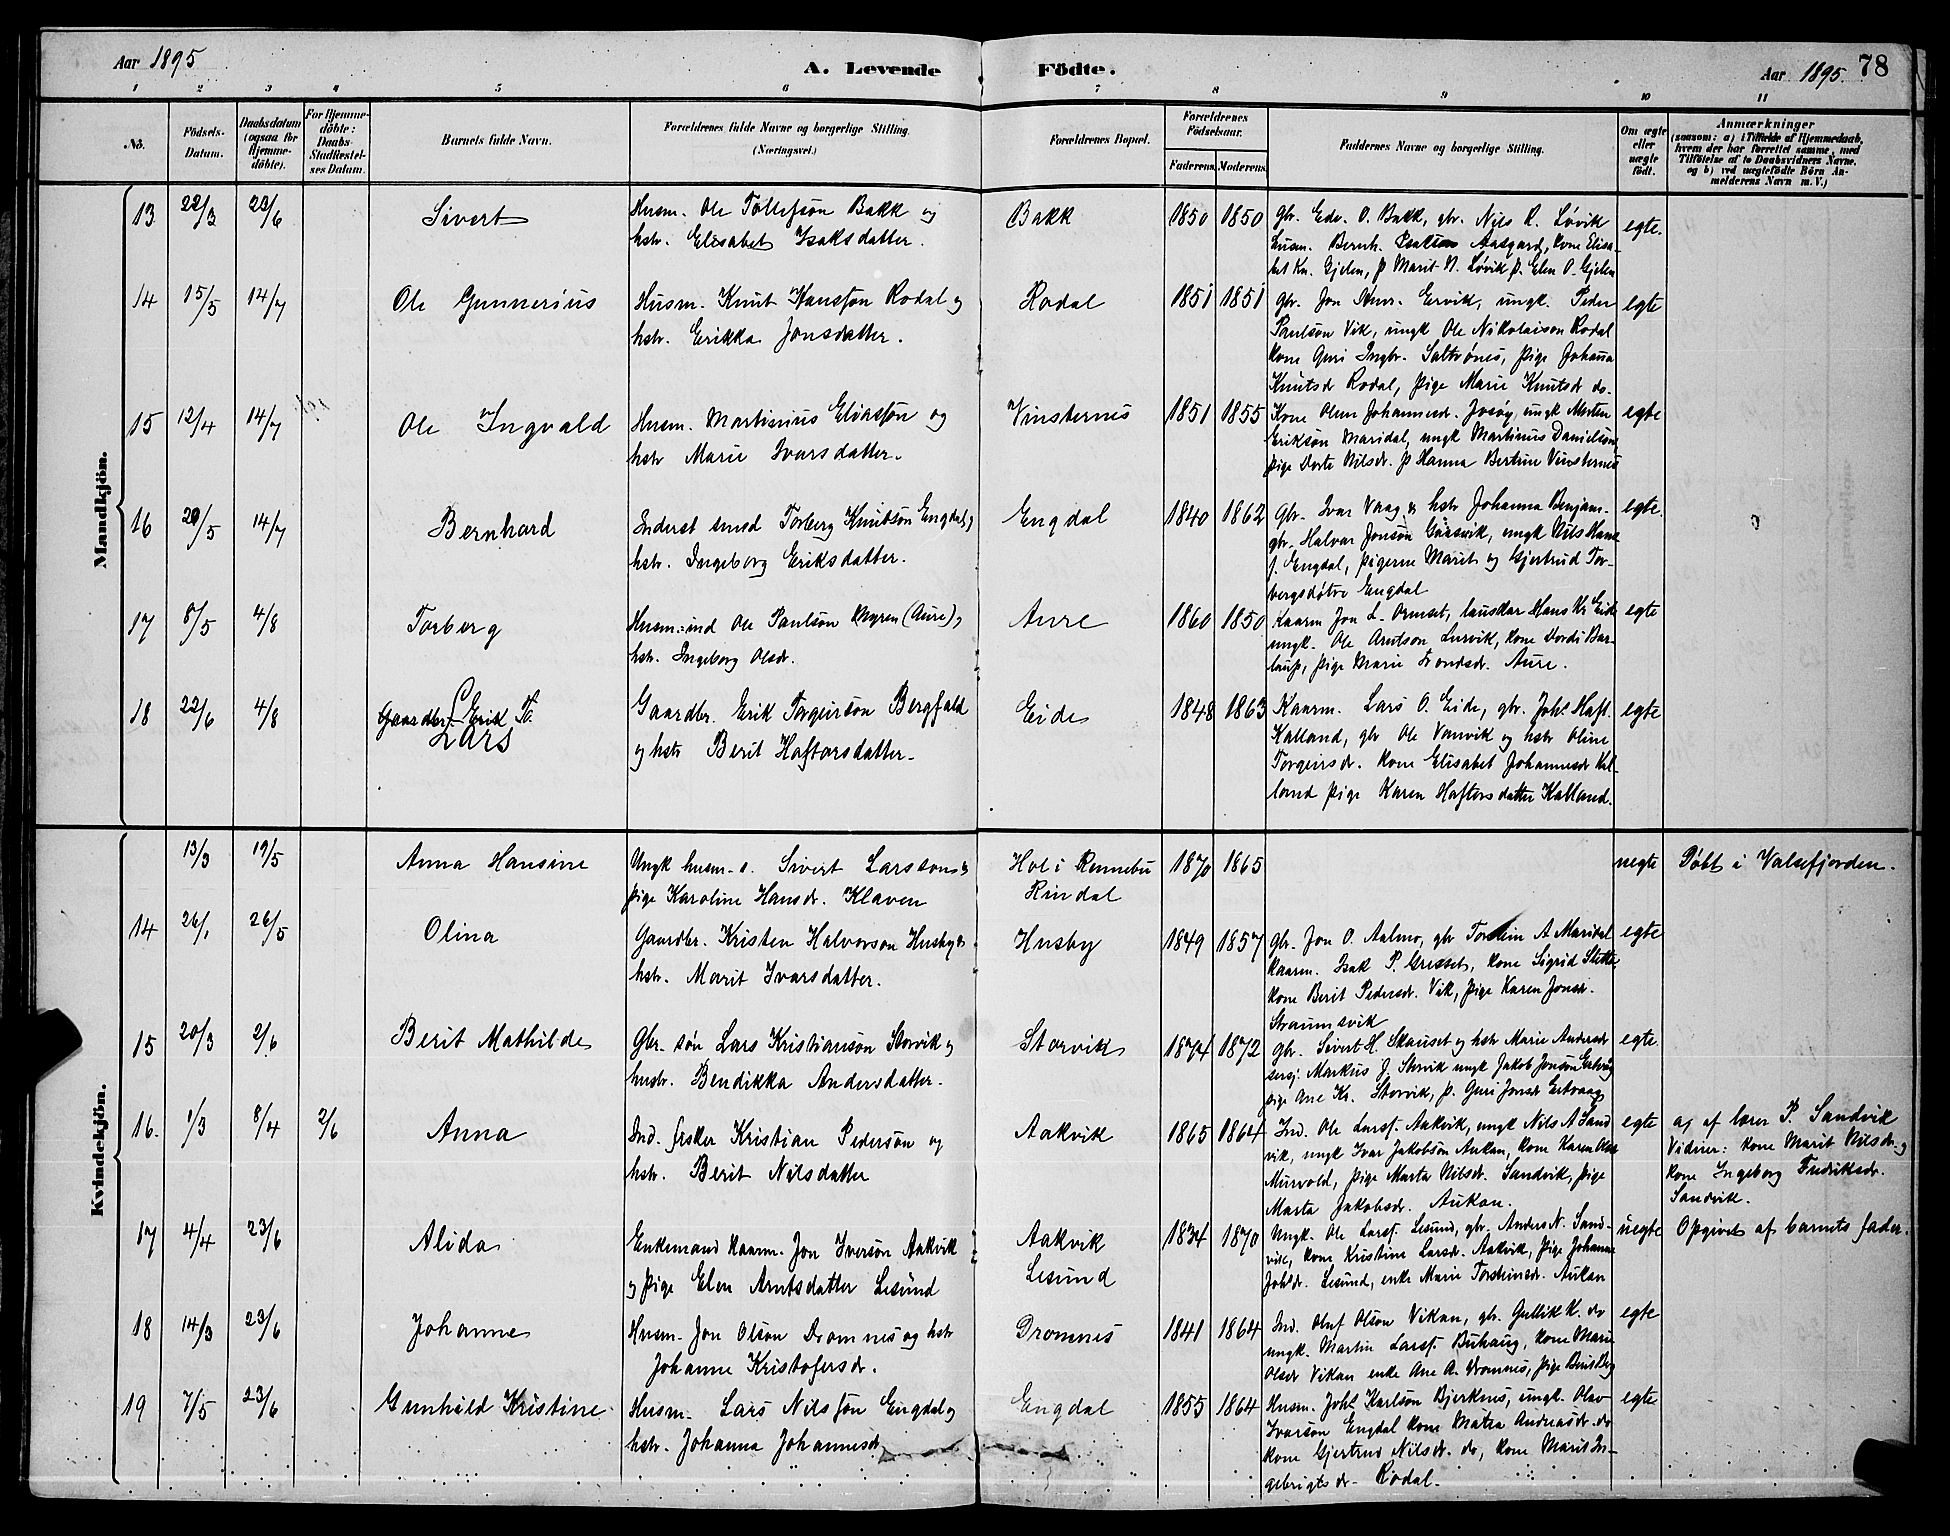 Aar 1895
A. Levende Födte.
Aar 1895. 78
1 2 3 4 5 6 7 8 9 10 11
No.
Födsels-Datum.
Daabsdatum (ogsaa for Hjemme-döbte).
For Hjemme-döbte: Daabs-Stadfæstel-ses Datum.
Barnets fulde Navn.
Forældrenes fulde Navne og borgerlige Stilling. (Næringsvei.)
Forældrenes Bopæl.
Forældrenes Födselsaar.
Faderens. Moderens.
Faddernes Navne og borgerlige Stilling.
Om ægte eller uægte födt.
Anmærkninger
(saasom: a) i Tilfælde af Hjemmedaab, hvem der har forrettet samme, med Tilföielse af to Daabsvidners Navne, og b) ved uægtefödte Börn Anmelderens Navn m. V.)
Mandkjön.
13 22/3 23/6 Sivert
Husm. Ole Tollefsön Bakk og
hstr. Elisabet Isaksdatter.
Bakk 1850 1850
gbr. Edv. O. Bakk, gbr. Nils R. Løvik
husm. Bernh. Isaksøn Aasgard, kone Elisa-
bet Kn. Gjelen, p Marit N. Løvik p. Elen O. Gjelen
egte.
14 15/5 14/7 Ole Gunnerius
Husm. Knut Hansøn Rodal og
hstr. Erikka Jonsdatter.
Rodal 1851 1851
gbr. Jon Ervik, ungk. Peder
Paulsøn Vik, ungk Ole Nikolaison Rodal
kone Guri Ingbr. Saltrönes, pige Johana
Knutsdr Rodal, pige Marie Knutsdr do.
egte
15 12/4 14/7 Ole Ingvald
Husm. Martinius Eliasson og
hstr Marie Ivarsdatter.
Vinsternes 1851 1855
Kone Olen Johannesdr. ungk Morten
Eriksøn Maridal, ungk Martinus Danielson
pige Dorte Nilsdr. p Hanna Bertine Vinsternes
egte
16 29/5 14/7 Bernhard
Inderst smed Torberg Knutsøn Engdal,
hstr. Ingeborg Eriksdatter.
Engdal 1840 1862
gbr. Ivar Vaag & hstr Johanna Benjam-
gbr. Halvar Jonsön Gaasvik, ungk Nils Hans
s. Engdal, pigerne Marit og Gjertrud Tor-
bergsdötre Engdal
egte.
17 8/5 4/8 Torberg
Husm: ind Ole Paulsøn Myren (Aure),
hstr. Ingeborg Olsdr.
Aure 1860 1850
Kaarm Jon L. Ormset, Hans Kr Eide
ungk. Ole Arntson Lurvik, kone Dordi Bar-
laup, pige Marie Trondsdr. Aure.
egte
18 22/6 4/8 Gaardbr. Erik T.
Lars
Gaardbr. Erik Torgeirsön Bergfald
og hstr Berit Haftorsdatter.
Eide 1848 1863
Kaarm. Lars O. Eide, gbr. Johl Haft.
Kalland, gbr Ole Vanvik og hstr Oline
Torgeirsdr. kone Elisabet Johannesdr Kal-
land pige Karen Haftorsdatter Kalland.
egte
Kvindekjön.
13/3 19/5 Anna Hansine
Ungk husm. s. Sivert Larsson &
pige Karoline Hansdr. Klaven
Hol i Rennebu
Rindal
1870 1865
uegte Döbt i Valsefjorden.
14 26/1 26/5 Olina
Gaardbr. Kristen Halvorson Husby &
hstr. Marit Ivarsdatter.
Husby 1849 1857
gbr. Jon O. Aalmo, gbr Torstein A Maridal
kaarm. Isak P. Grisset, kone Sigrid
kone Berit Pedersdr. Vik, pige Karen Jonsdr.
Straumsvik
egte
15 20/3 2/6 Berit Mathilde
Gbr. søn Lars Kristiansøn Storvik og
hustr. Bendikka Andersdatter.
Storvik 1874 1872
gbr. Sivert H. Skauset og hstr Marie Andersdr
Markus J. Storvik ungk Jakob Jonsøn Ertvaag
pige Ane Kr. Storvik, p. Guri Jonsdr Ertvaag
egte.
16. 1/3 8/4 2/6 Anna
Ind. fisker Kristian Pedersøn og
hstr. Berit Nilsdatter
Aakvik 1865 1864
Ind. Ole Larss. Aakvik, ungk Nils A Sand
vik, ungk Ivar Jakobsøn Aukan, kone Karen Olsdr
Murvold, pige Marta Nilsdr. Sandvik, pige
Marta Jakobsdr. Aukan.
egte
a) af lærer P. Sandvik
Vidner: kone Marit Nilsdr. og
kone Ingeborg Fredriksdr.
Sandvik.
17 4/4 23/6 Alida
Enkemand kaarm. Jon Iversøn Aakvik
og pige Elen Arntsdatter Lesund
Aakvik
Lesund
1834 1870
Ungk. Ole Larss. Lesund, gbr. Anders N. Sand-
vik, kone Kristine Larsdr. Aakvik, pige Johanne
Johlsdr. Lesund, enke Marie Torsteinsdr. Aukan
uegte Opgivet af barnets fader.
18 14/3 23/6 Johanne
Husm. Jon Olsön Dromnes og hstr
Johanne Kristofersdr.
Dromnes 1841 1864
Ind. Oluf Olson Vikan, gbr. Gullik K. do
ungk. Martin Larss. Buhaug, kone Marie
Olsdr Vikan enke Ane A. Dromnes, pige
egte
19 7/5 23/6 Gunhild Kristine
Husm. Lars Nilssøn Engdal og
hstr. Johanna Johannesdr
Engdal 1855 1864
Husm. Johl Karlsøn Bjerknes, ungk. Olav
Ivarsøn Engdal kone Marta Andreasdr. do
kone Gjertrud Nilsdr. do, kone Marit In-
gebrigtsdr. Rodal.
egte